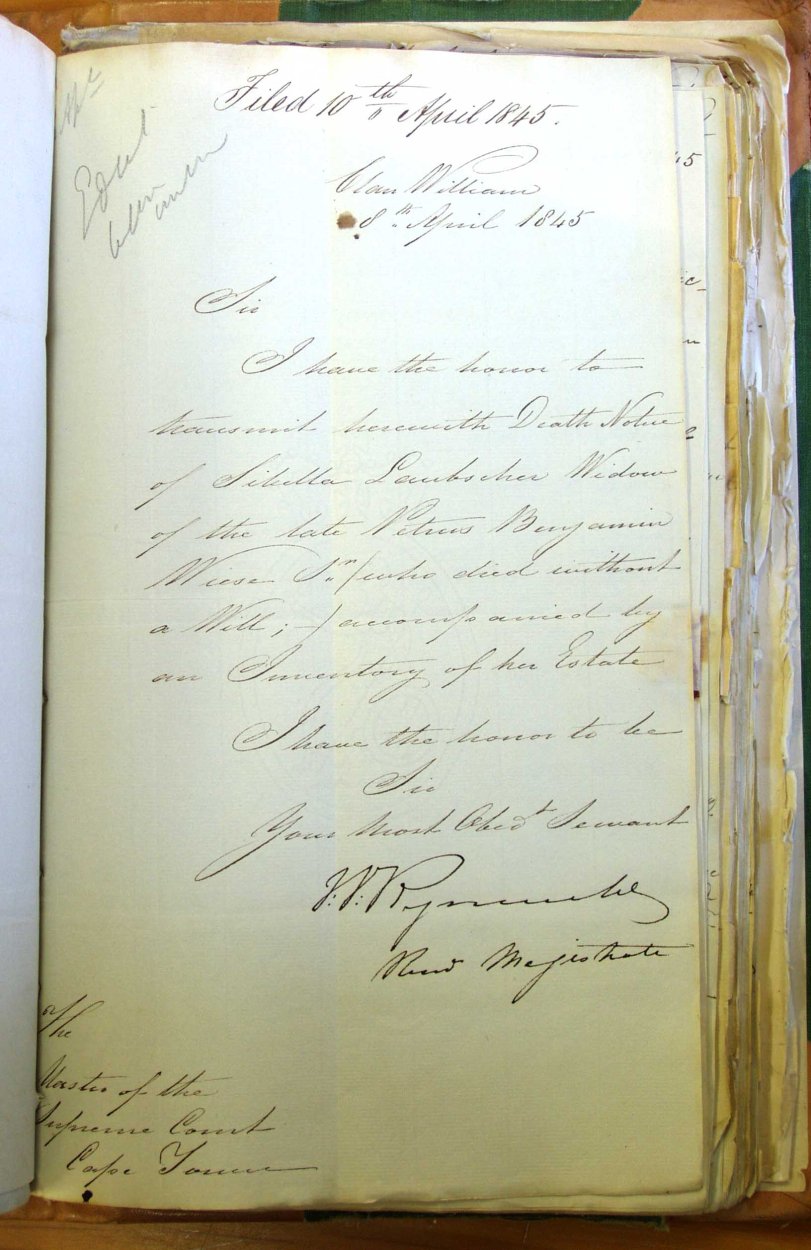 Filed 10th April 1845.
Clan William
8th April 1845
Sir
I have the honor to
transmit herewith Death Notice
of Sibella Laubscher Widow
of the late Petrus Benjamin
Wiese Sn. (who died without
a Will; -) accompanied by
an Inventory of her Estate
I have the honor to be
Sir
Your Most Obedt. Servant
Resdt Magistrate
The
Master of the
Supreme Court
Cape Town